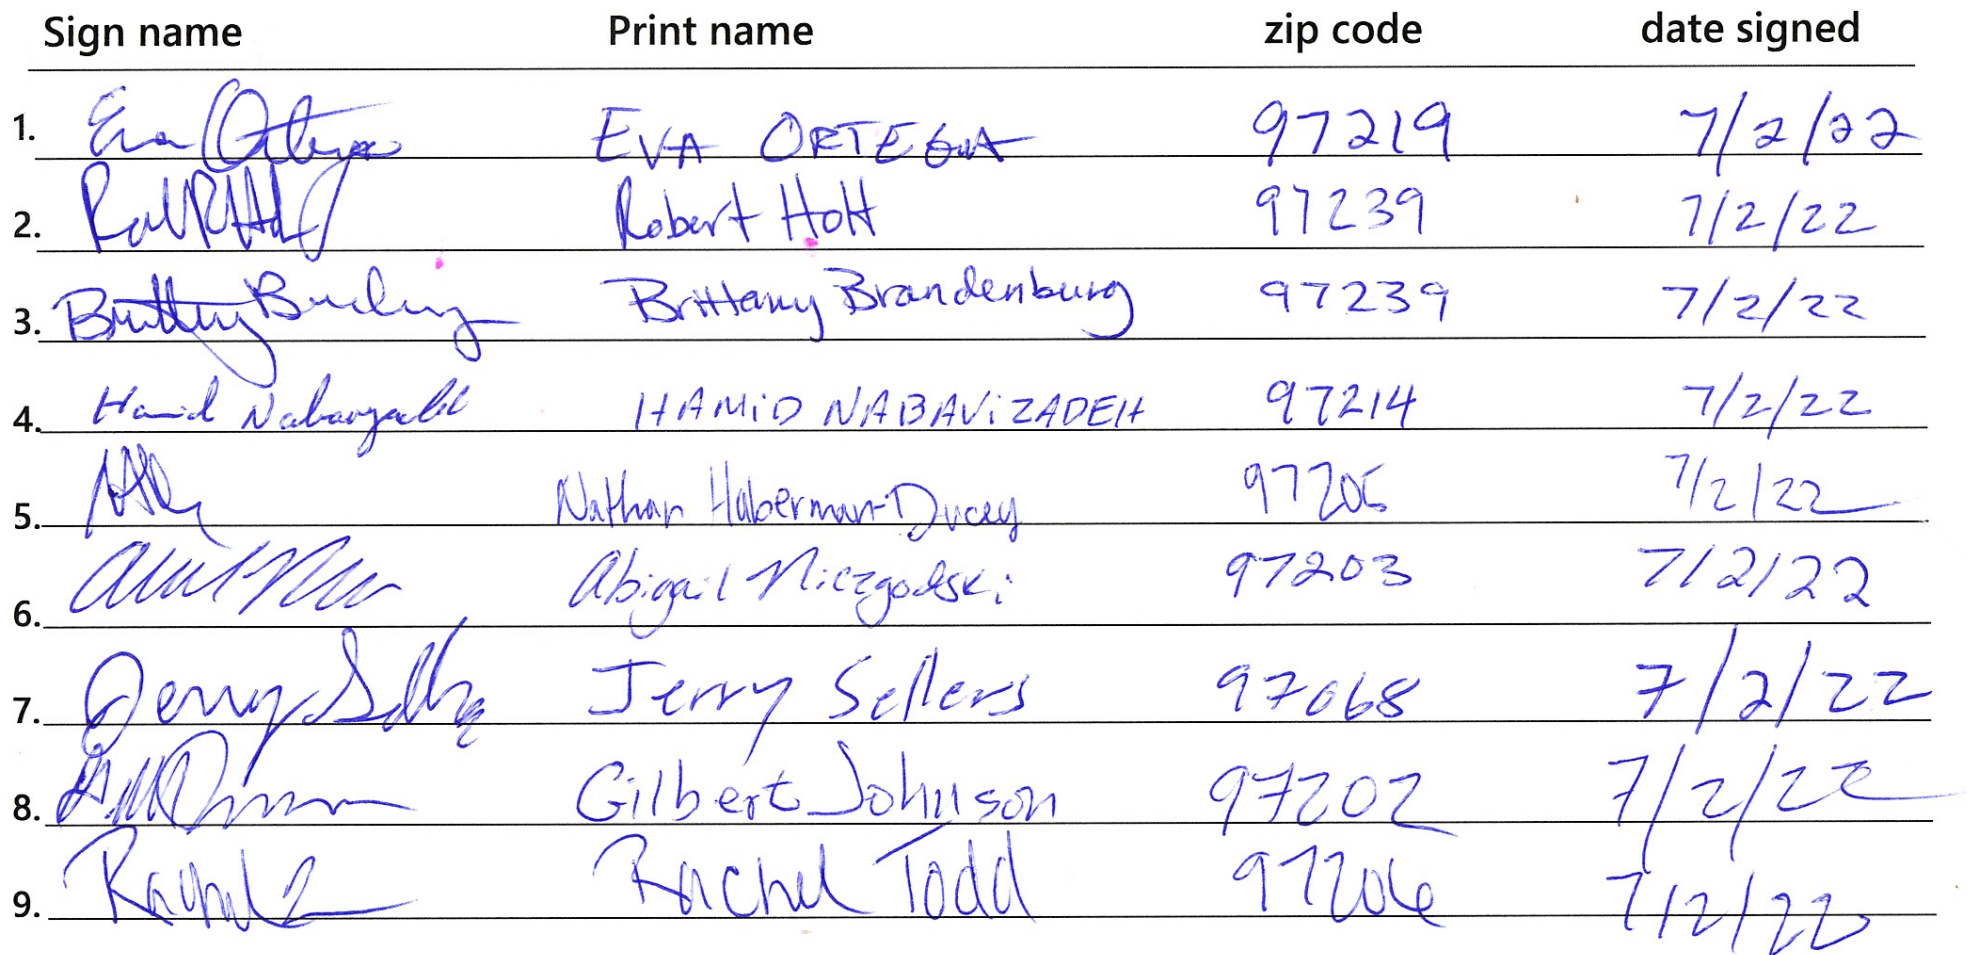 Sign name Print name zip code date signed
1. Eva Ortega EVA ORTEGA 97219 7/2/22
2. Robert Hott 97239 7/2/22
3. Brittany Brandenburg 97239 7/2/22
4. Hamid HAMiD NABAViZADEH 97214 7/2/22
5. Nathan Haberman-Ducey 97206 7/2/22
6. Abigail Niczgodski 97203 7/2/22
7. Jerry Jerry Sellers 97068 7/2/22
8. Gilbert Johnson 97202 7/2/22
9. Rachel Rachel Todd 97206 7/2/22